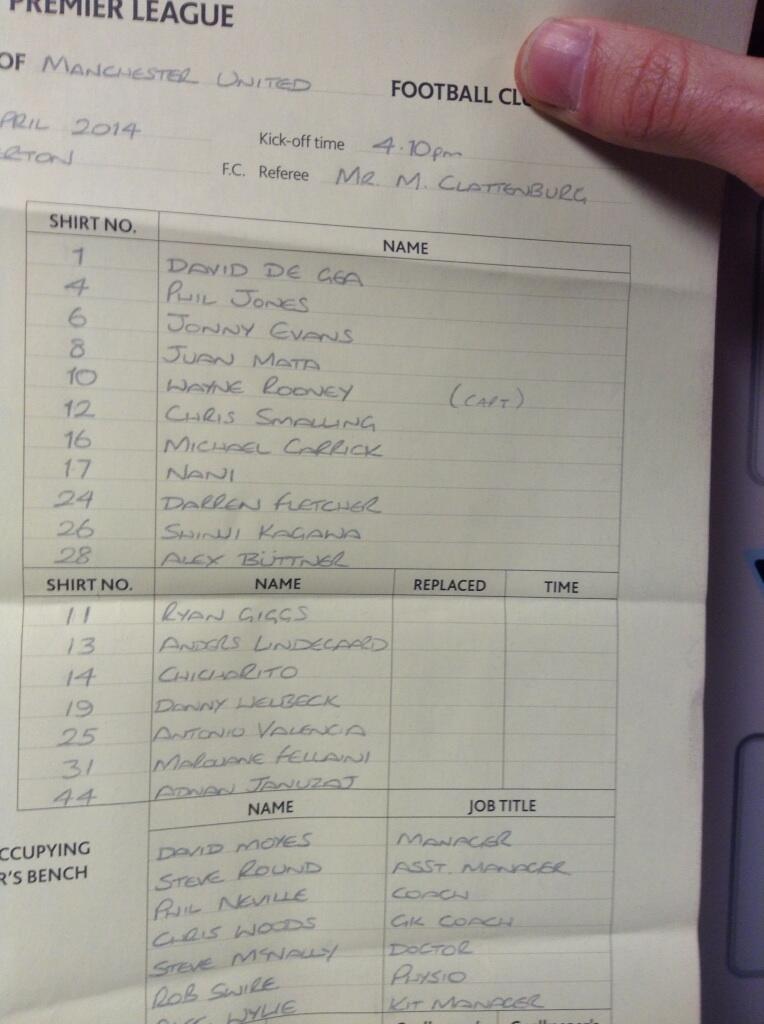 PREMIER LEAGUE
OF MANCHESTER UNITED FOOTBALL
2014 Kick-off time 4.10pm
F.C. Referee MR. M. CLATTENBURG
SHIRT NO. NAME
1 DAVID DE GEA
4 PHIL JONES
6 JONNY EVANS
8 JUAN MATA
10 WAYNE ROONEY (CAPT)
12 CHRIS SMALLING
16 MICHAEL CARRICK
17 NANI
24 DARREN FLETCHER
26 SHINJI KAGAWA
28 ALEX BÜTTNER
SHIRT NO. NAME REPLACED TIME
11 RYAN GIGGS
13 ANDERS LINDEGAARD
14 CHICHARITO
19 DANNY WELBECK
25 ANTONIO VALENCIA
31 MAROUANE FELLAINI
44 ADNAN JANUZAJ
NAME JOB TITLE
DAVID MOYES MANAGER
STEVE ROUND ASST. MANAGER
PHIL NEVILLE COACH
CHRIS WOODS GK COACH
STEVE MCNALLY DOCTOR
ROB SWIRE PHYSIO
WYLIE KIT MANAGER
BENCH